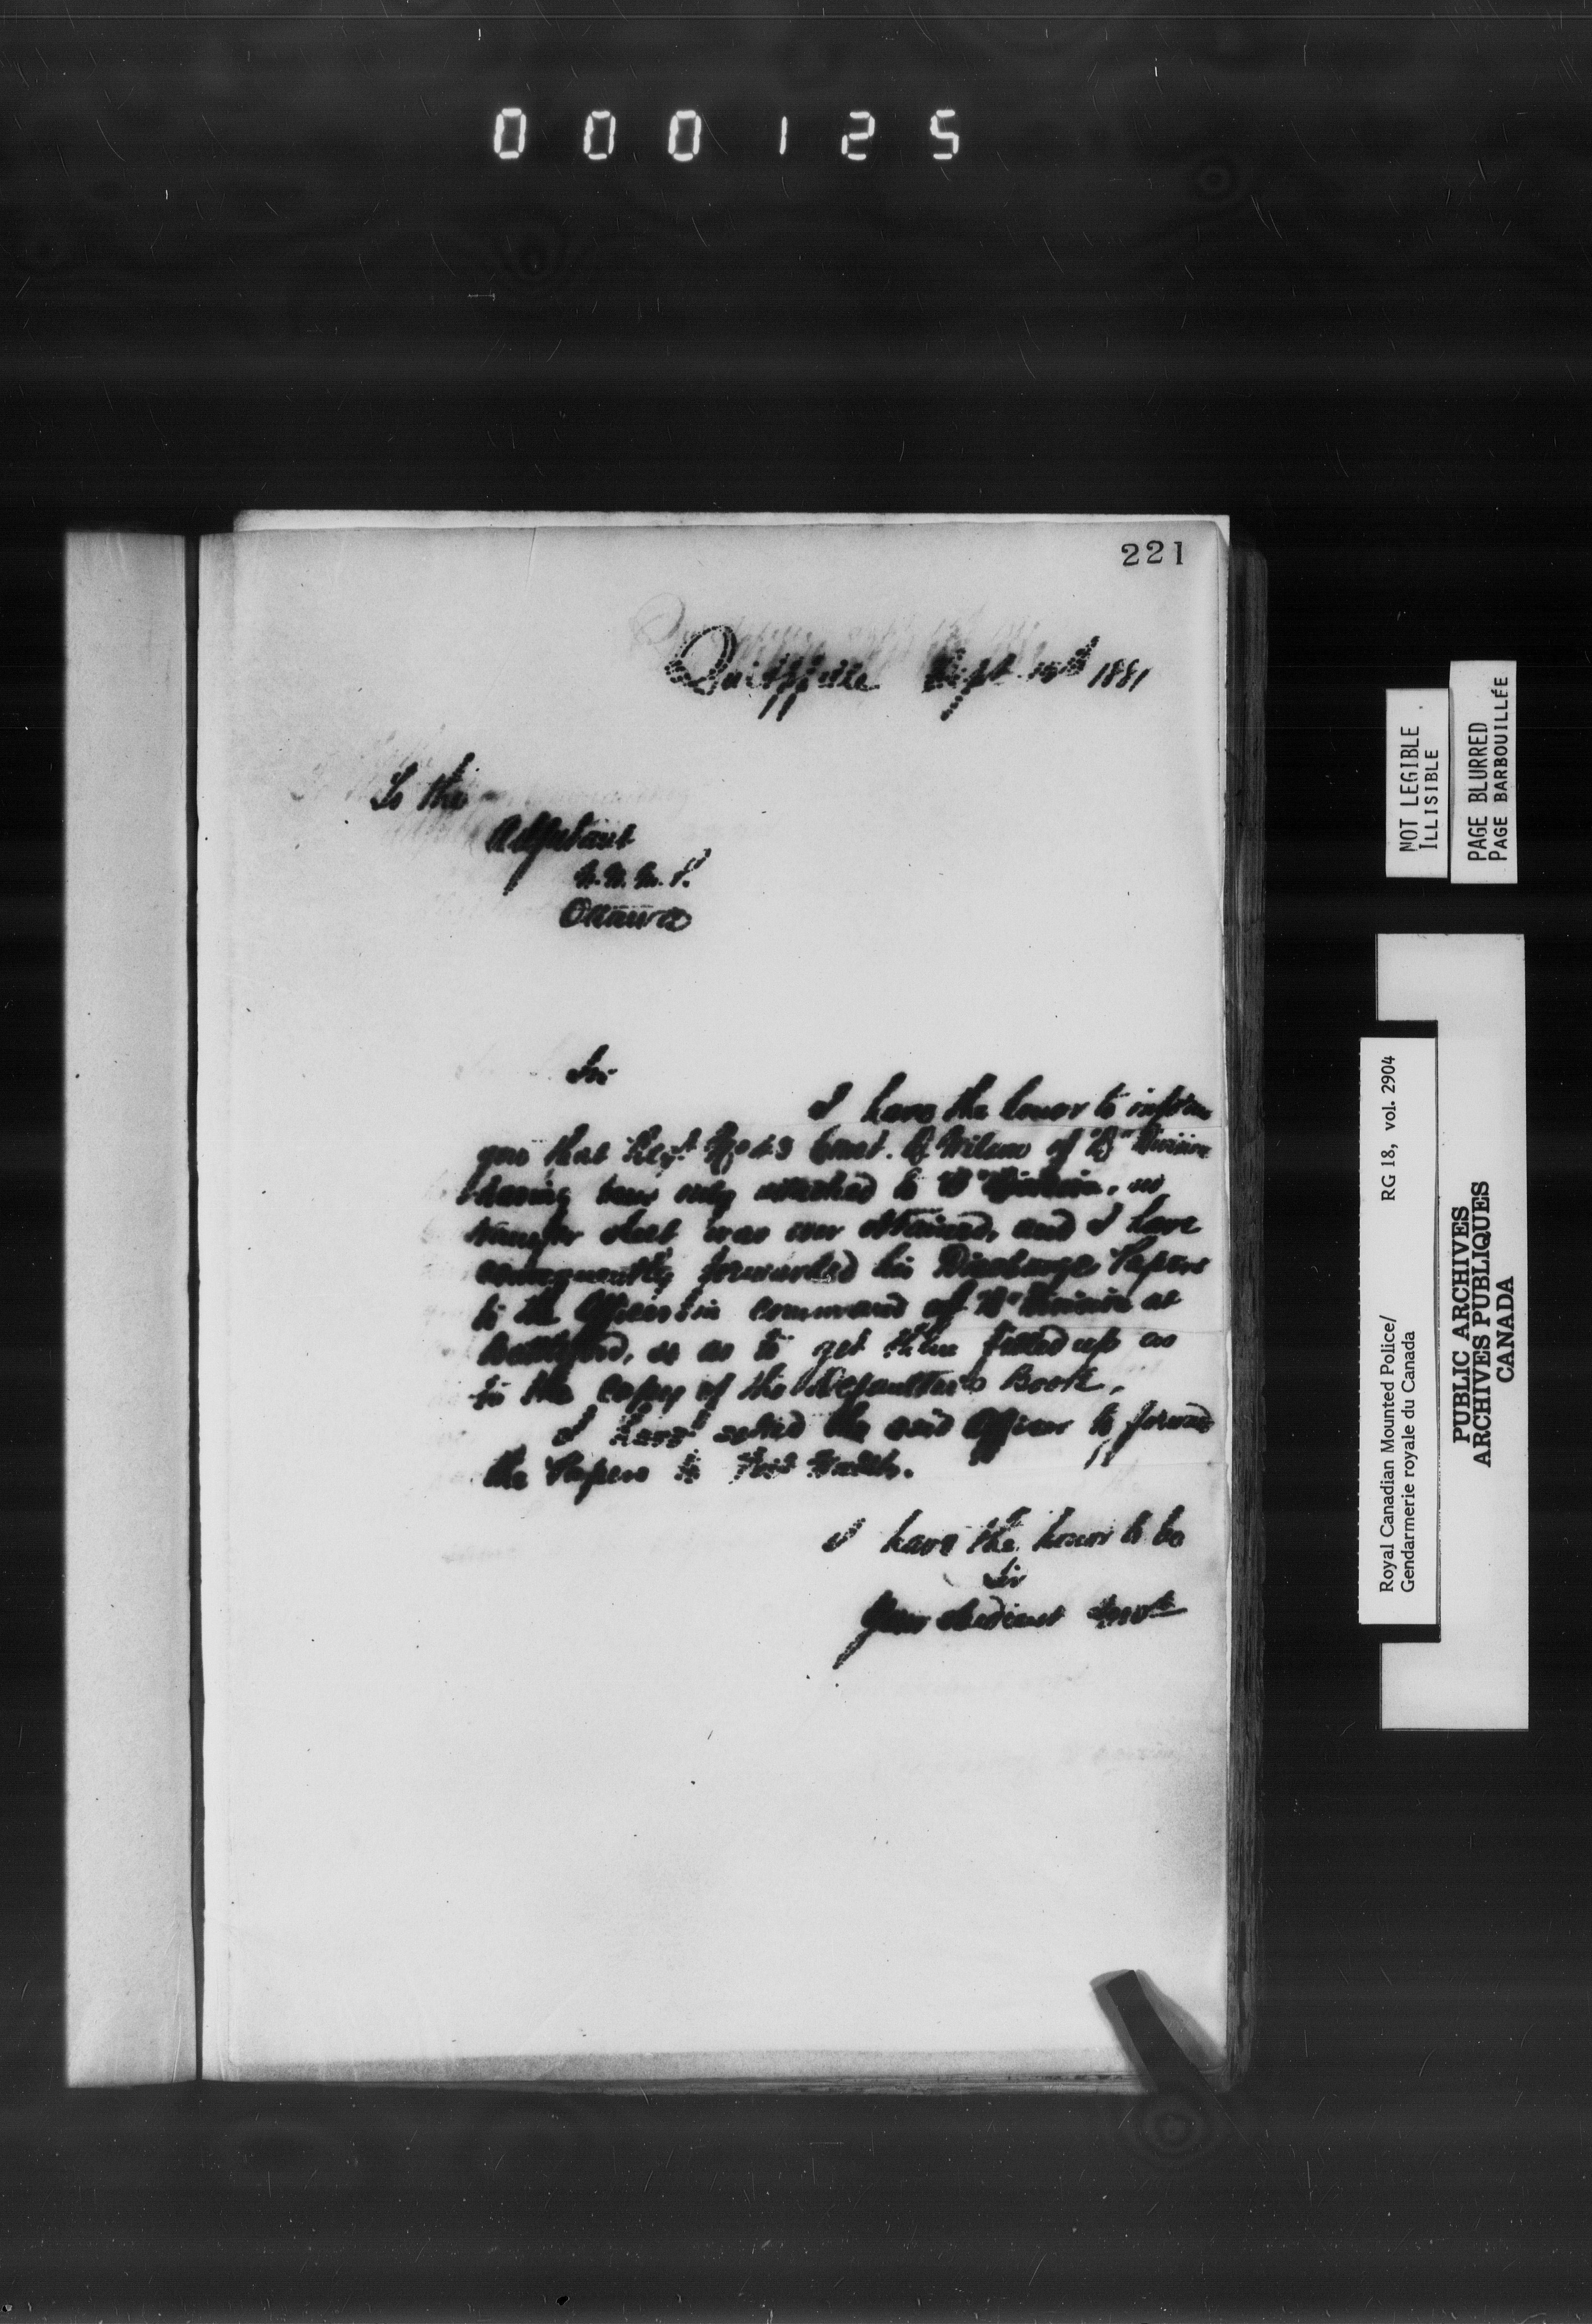 000125
221
Qu'Appelle Sept. 15th 1881
To the
Adjutant
N.W.M.P.
Ottawa
Sir
I have the honor to inform
you that Regt. No Const. Wilson of Division
having been only attached to Division, no
transfer sheet was ever obtained, and I have
consequently forwarded his Discharge Papers
to the Officer in command of Division at
Battleford, so as to get them filled up as
to the copy of the Defaulter's Book.
I have asked the said Officer to forward
the Papers to
I have the honor to be
Sir
Your obedient Servt
NOT LEGIBLE
ILLISIBLE
PAGE BLURRED
PAGE BARBOUILLÉE
Royal Canadian Mounted Police/ RG 18, vol. 2904
Gendarmerie royale du Canada
PUBLIC ARCHIVES
ARCHIVES PUBLIQUES
CANADA